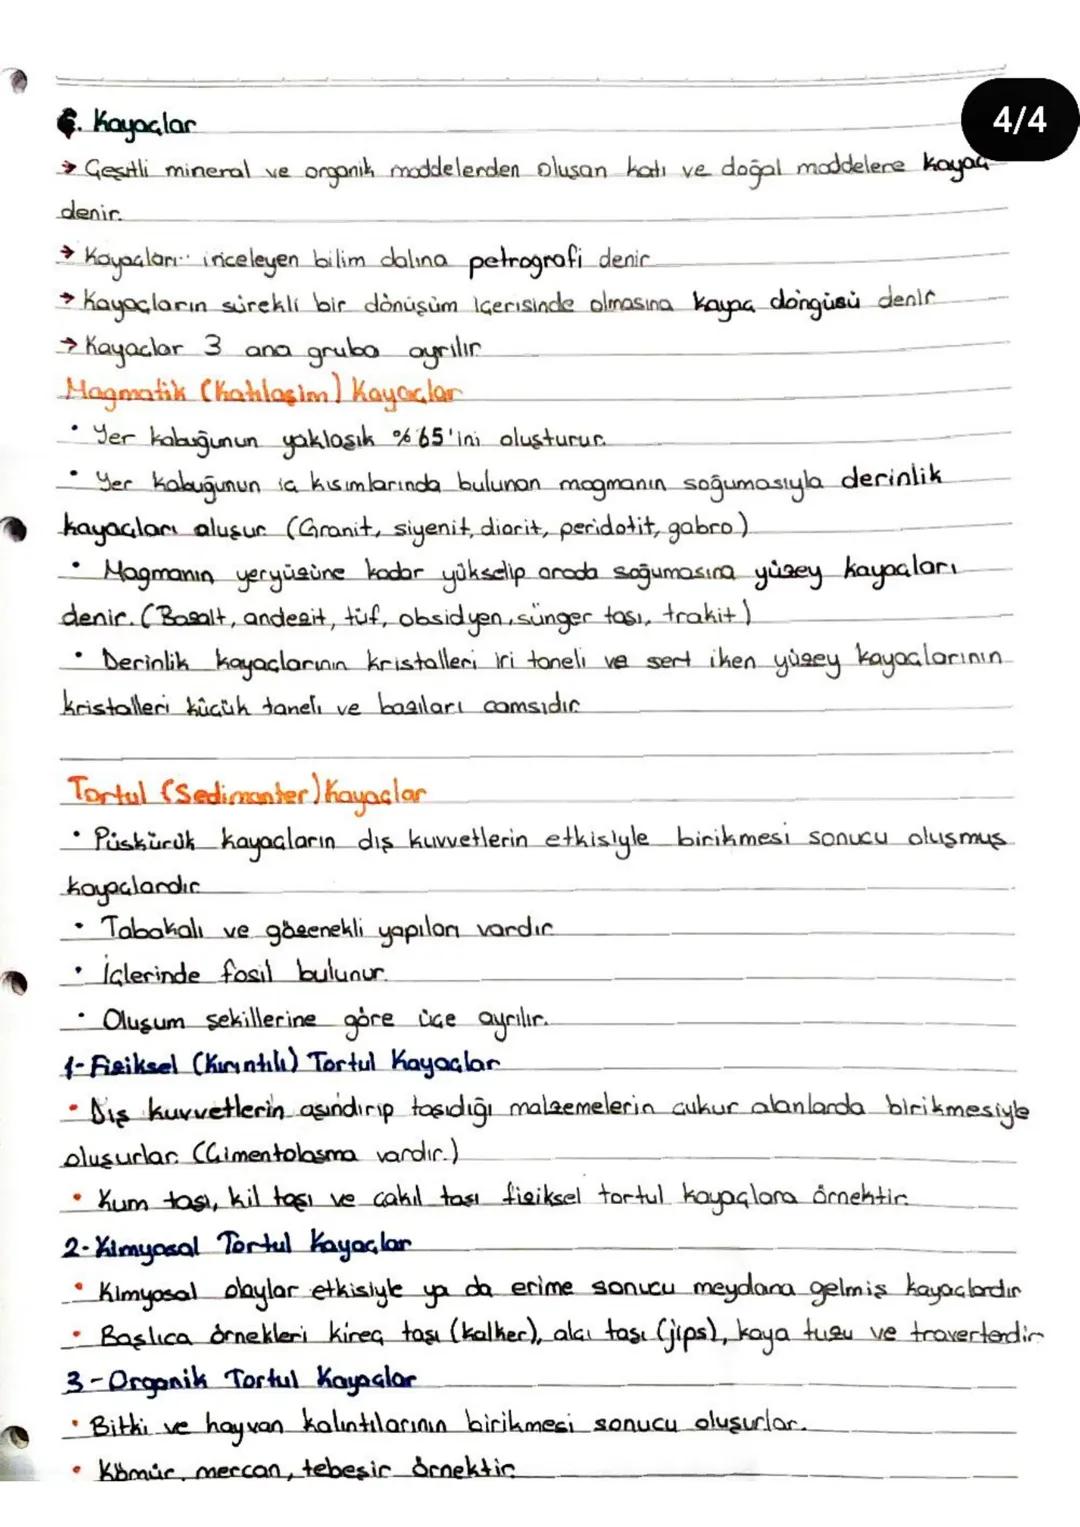 6. Kayaçlar
4/4
→ Çeşitli mineral ve organik maddelerden oluşan katı ve doğal maddelere kayaç
denir.
→ Kayaçları inceleyen bilim dalına petrografi denir
→ Kayaçların sürekli bir dönüşüm içerisinde olmasına kayaç döngüsü denir
→ Kayaçlar 3 ana gruba ayrılır
Magmatik (Katılaşım) Kayaçlar
• Yer kabuğunun yaklaşık %65'ini oluşturur.
• Yer kabuğunun iç kısımlarında bulunan magmanın soğumasıyla derinlik
kayaçları oluşur. (Granit, siyenit, diorit, peridotit, gabro)
• Magmanın yeryüzüne kadar yükselip orada soğumasına yüzey kayaçları
denir. (Bazalt, andezit, tüf, obsidyen, sünger taşı, trakit)
• Derinlik kayaçlarının kristalleri iri taneli ve sert iken yüzey kayaçlarının
kristalleri küçük taneli ve bazıları camsıdır
Tortul (Sedimanter) Kayaçlar
• Püskürük kayaçların dış kuvvetlerin etkisiyle birikmesi sonucu oluşmuş
kayaçlardır
• Tabakalı ve gözenekli yapıları vardır
• İçlerinde fosil bulunur.
• Oluşum şekillerine göre üçe ayrılır.
1- Fiziksel (Kırıntılı) Tortul Kayaçlar
• Dış kuvvetlerin aşındırıp taşıdığı malzemelerin çukur alanlarda birikmesiyle
oluşurlar. (Çimentolaşma vardır.)
• Kum taşı, kil taşı ve çakıl taşı fiziksel tortul kayaçlara örnektir.
2- Kimyasal Tortul Kayaçlar
• Kimyasal olaylar etkisiyle ya da erime sonucu meydana gelmiş kayaçlardır
• Başlıca örnekleri kireç taşı (kalker), alçı taşı (jips), kaya tuzu ve travertendir
3- Organik Tortul Kayaçlar
• Bitki ve hayvan kalıntılarının birikmesi sonucu oluşurlar.
• Kömür, mercan, tebeşir örnektir